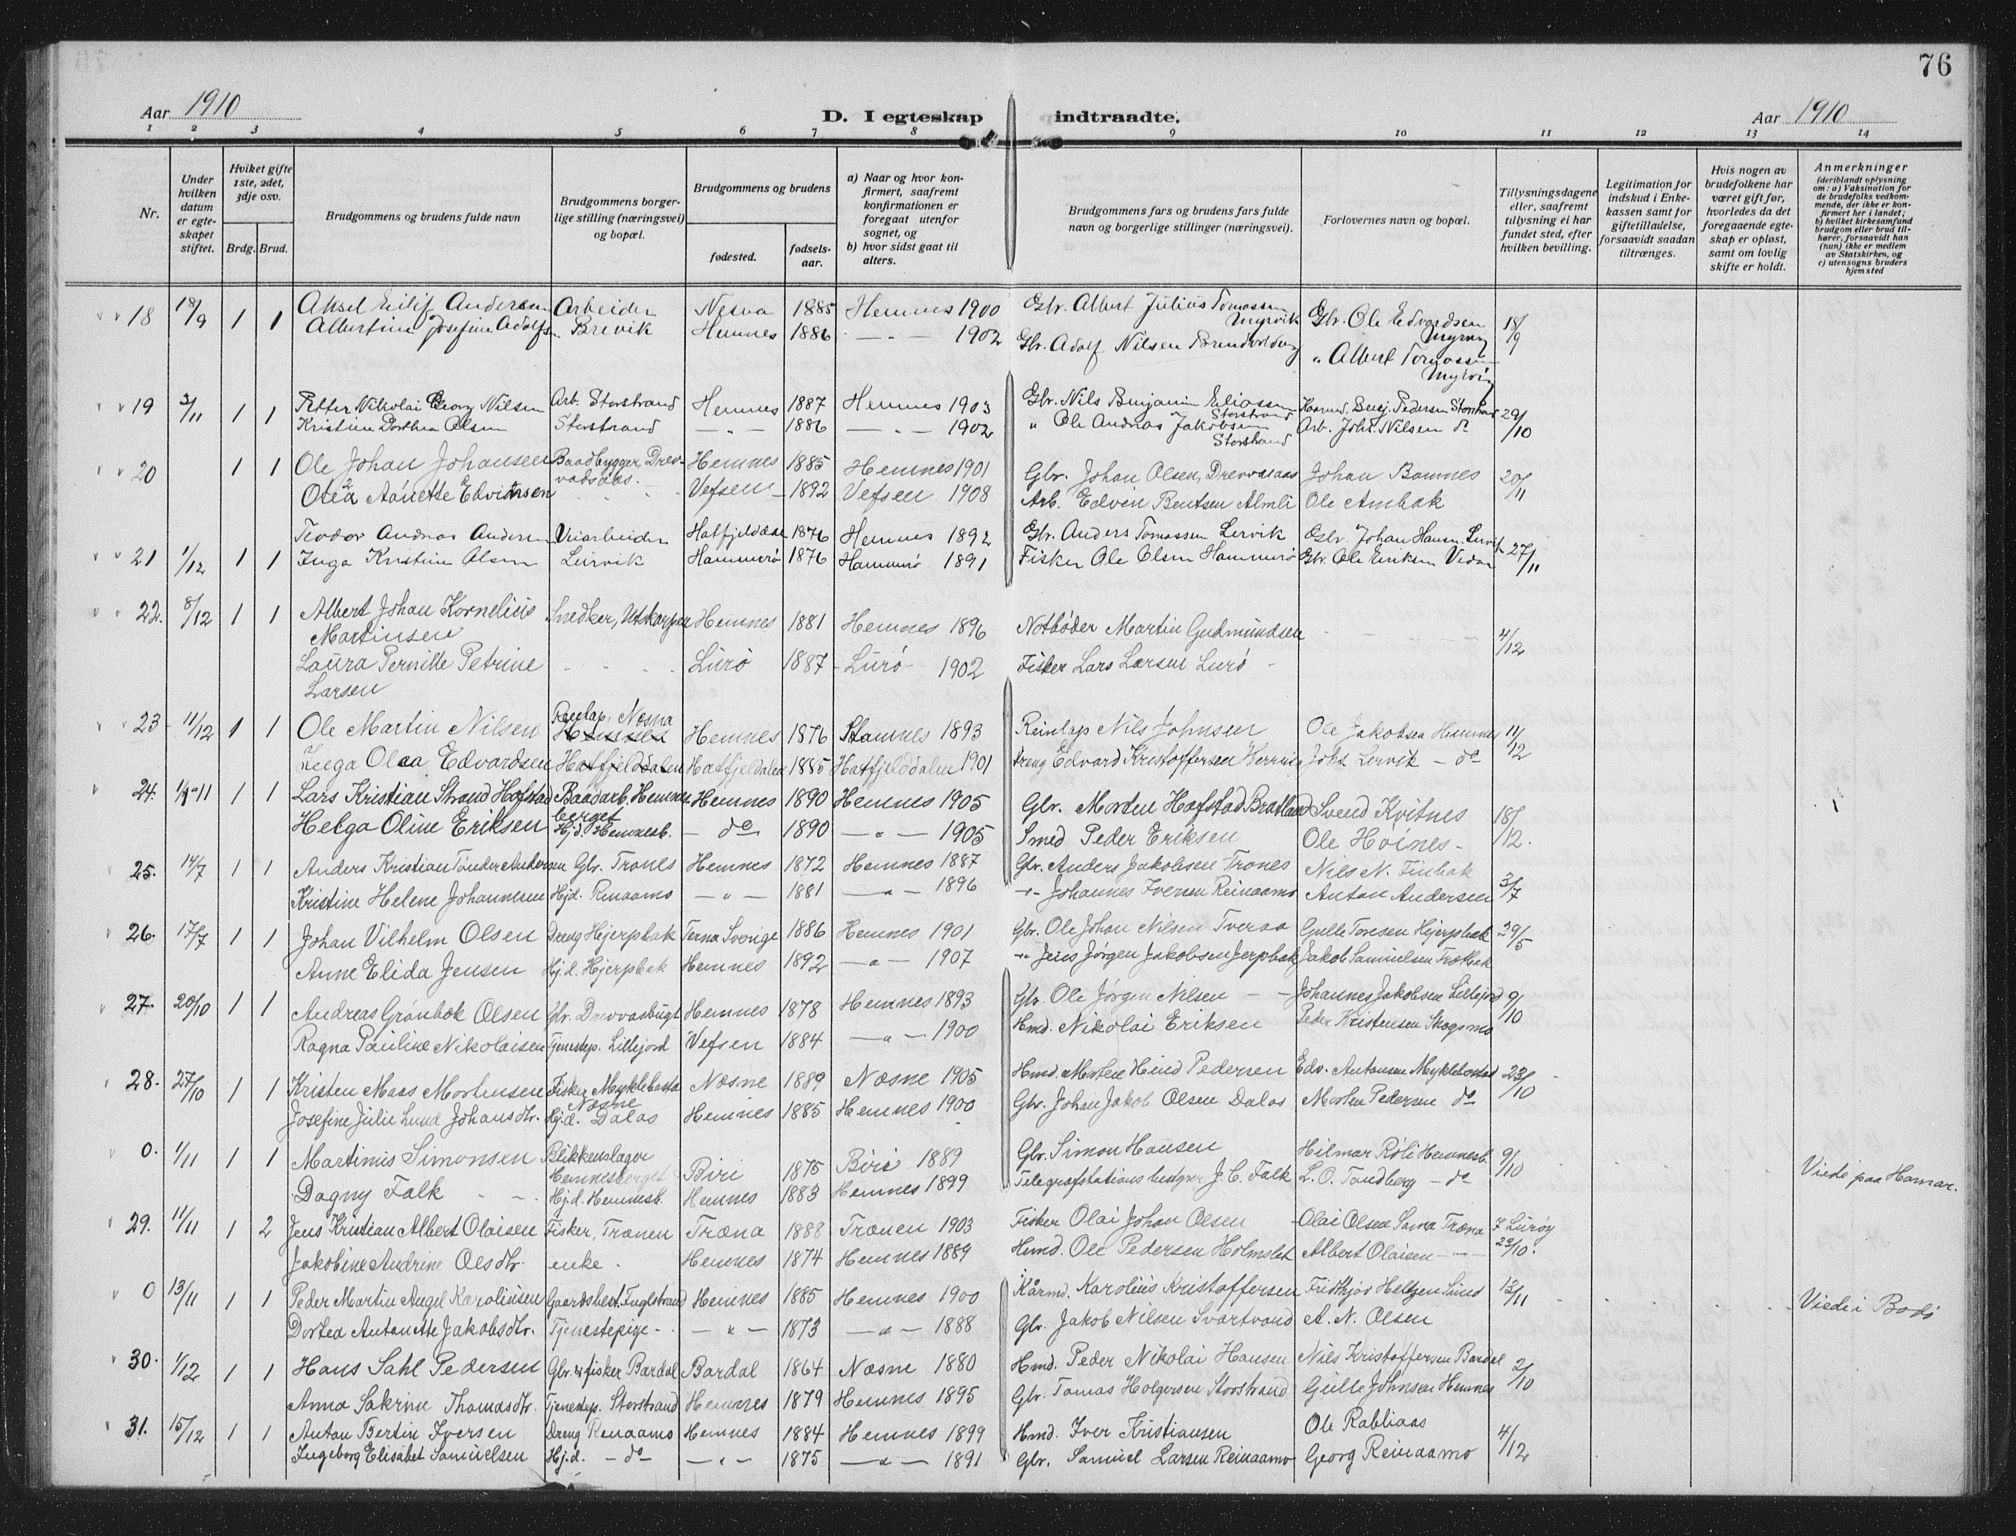 76
Aar 1910 D. I egteskap indtraadte. Aar 1910
1 2 3 4 5 6 7 8 9 10 11 12 13 14
Nr.
Under hvilken datum er egteskapet stiftet.
Hviket gifte 1ste, 2det, 3dje osv.
Brdg. Brud.
Brudgommens og brudens fulde navn
Brudgommens borgerlige stilling (næringsvei) og bopæl.
Brudgommens og brudens
fødested.
fødselsaar.
a) Naar og hvor konfirmert, saafremt konfirmationen er foregaat utenfor sognet, og
b) hvor sidst gaat til alters.
Brudgommens fars og brudens fars fulde navn og borgerlige stillinger (næringsvei).
Forlovernes navn og bopæl.
Tillysningsdagene eller, saafremt tillysning ei har fundet sted, efter hvilken bevilling.
Legitimation for indskud i Enkekassen samt for giftetilladelse, forsaavidt saadan tiltrænges.
Hvis nogen av brudefolkene har været gift før, hvorledes da det foregaaende egteskap er opløst, samt om lovlig skifte er holdt.
Anmerkninger
(deriblandt oplysning om: a) Vaksination for de brudefolks vedkommende, der ikke er konfirmert her i landet; b) hvilket kirkesamfund brudgom eller brud tilhører, forsaavidt han (hun) ikke er medlem av Statskirken, og c) utensogns bruders hjemsted
18 18/9 1 1 Aksel Eilif Andersen Arbeider Nesna 1885 Hemnes 1900 Gbr. Albert Julius Tomassen Myrvik Gbr. Ole Edvardsen 18/9
Albertine Josefine Adolfs. Brevik Hemnes 1886 — „ — 1902 Gbr. Adolf Nilsen " Albert Tomassen
19 3/11 1 1 Petter Nikolai Georg Nilsen Arb. Storstrand Hemnes 1887 Hemnes 1903 Gbr. Nils Benjamin Eliassen Storstrand Benj. Pedersen 29/10
Kristine Dorthea Olsen Storstrand — „ — 1886 — „ — 1902 " Ole Andreas Jakobsen Storstrand Arb. Joh. Nilsen do
20 1 1 Ole Johan Johansen Baadbygger, Drevvadsaas Hemnes 1885 Hemnes 1901 Gbr. Johan Olsen, Drevvasaas Johan Bomnes 20/11
Olea Aanette Edvinsen Vefsen 1892 Vefsen 1908 Arb. Edvin Bentsen Almli Ole Ambak
21 1/12 1 1 Teodor Andreas Andersen Veiarbeider Hatfjelddal 1876 Hemnes 1892 Gbr. Anders Tomassen Lervik Gbr. Johan Hansen Lervik 27/11
Inga Kristine Olsen Leirvik Hammerø 1876 Hammerø 1891 Fisker Ole Olsen Hammerø Gbr. Ole Eriksen
22. 8/12 1 1 Albert Johan Kornelius Snedker, Utskarpen Hemnes 1881 Hemnes 1896 Notbøder Martin Gudmundsen 4/12
Martinsen
Laura Pernille Petrine Lurø 1887 Lurø 1902 Fisker Lars Larsen Lurø
Larsen
23 11/12 1 1 Ole Martin Nilsen Reinlap, Nesna Hemnes 1876 Stamnes 1893 Reinlap Nils Johnsen Ole Jakobsen Hemnes 11/12
Olea Edvardsen Hatfjelddalen Hatfjeldalen 1885 Hatfjelddalen 1901 Dreng Edvard Kristoffersen Lervik — do
24. 1 1 Lars Kristian Strand Hofstad Baadarb. Hemnesberget Hemnes 1890 Hemnes 1905 Gbr. Morten Hofstad Bratland Svend Kvitnes 18/12.
Helga Oline Eriksen Hjd. Hemnesb. — do — 1890 — „ — 1905 Smed Peder Eriksen Ole Høines
25. 14/7 1 1 Anders Kristian Tønder Andersen Gbr. Trones Hemnes 1872 Hemnes 1887 Gbr. Anders Jakobsen Trones Nils N. Finbak 3/7
Kristine Helene Johannesen Hjd. Renaamo — „ — 1881 — „ — 1896 — „ — Johannes Iversen Reinaamo Anton Andersen
26. 17/7 1 1 Johan Vilhelm Olsen Dreng Hjerpbak Terna Sverige 1886 Hemnes 1901 Gbr. Ole Johan Nilsen Tveraa Gulle Toresen Hjerpbak 29/5
Anne Elida Jensen Hj.d. Hjerpbak Hemnes 1892 — „ — 1907 „ Jens Jørgen Jakobsen Jerpbak Jakob Samuelsen
27. 20/10 1 1 Andreas Grønbek Olsen Gbr. Drevvasbugt Hemnes 1878 Hemnes 1893 Gbr. Ole Jørgen Nilsen Johannes Jakobsen Lillejord 9/10
Ragna Pauline Nikolaisen Tjenestep. Lillejord Vefsen 1884 — „ — 1900 Hmd. Nikolai Eriksen Peder Kristensen Skogsmo
28. 27/10 1 1 Kristen Maas Mortensen Fisker Myklebostad Næsne Næsne 1889 Næsne 1905 Hmd. Morten Hind Pedersen Edv. Antonsen Myklebostad 23/10
Josefine Julie Lund Johansdtr. Hj.d. Dalos Hemnes 1885 Hemnes 1900 Gbr. Johan Jakob Olsen Dalos Morten Pedersen do
0. 1/11 1 1 Martinus Simonsen Blikkenslager Hemnesberget Biri 1875 Biri 1889 Gbr. Simon Hansen Hilmar Røli Hemnesb. 9/10
Dagny Falk Hj.d. Hemnesb. Hemnes 1883 Hemnes 1899 Telegrafstationsbestyrer J. C. Falk L. O. Tandberg — do Viede paa Hamar.
29. 11/11 1 2 Jens Kristian Albert Olaisen Fisker, Trænen Træna 1888 Trænen 1903 Fisker Olai Johan Olsen Olai Olsen Sama Træna I Lurøy 23/10.
Jakobine Andrine Olsdtr. enke. Hemnes 1874 Hemnes 1889 Hmd. Ole Pedersen Holmslet Albert Olaisen — „ —
0 13/11 1 1 Peder Martin Angel Karoliusen Gaardsbest. Fuglstrand Hemnes 1885 Hemnes 1900 Kårmd. Karolius Kristoffersen Fridthjov Heltzen Sund 13/11 Viede i Bodø
Dortea Antonette Jakobsdtr. Tjenestepige — „ — 1873 — „ — 1888 Gbr. Jakob Nilsen Svartvand A. N. Olsen
30. 1/12 1 1 Hans Sahl Pedersen Gbr. og fisker Bardal Bardal 1864 Næsne 1880 Hmd. Peder Nikolai Hansen Nils Kristoffersen Bardal 2/10
Anna Sakrine Thomasdtr. Tjenestep. Storstrand Hemnes 1879 Hemnes 1895 Gbr. Tomas Holgersen Storstrand Gulle Johnsen Hemnes
31. 15/12 1 1 Anton Bertin Iversen Dreng Renaamo Hemnes 1884 Hemnes 1899 Hmd. Iver Kristiansen Ole Rabliaas 4/12
Ingeborg Elisabet Samuelsen Hj.d. — do — „ — 1875 — „ — 1891 Gbr. Samuel Larsen Reinaamo Georg Reinaamo